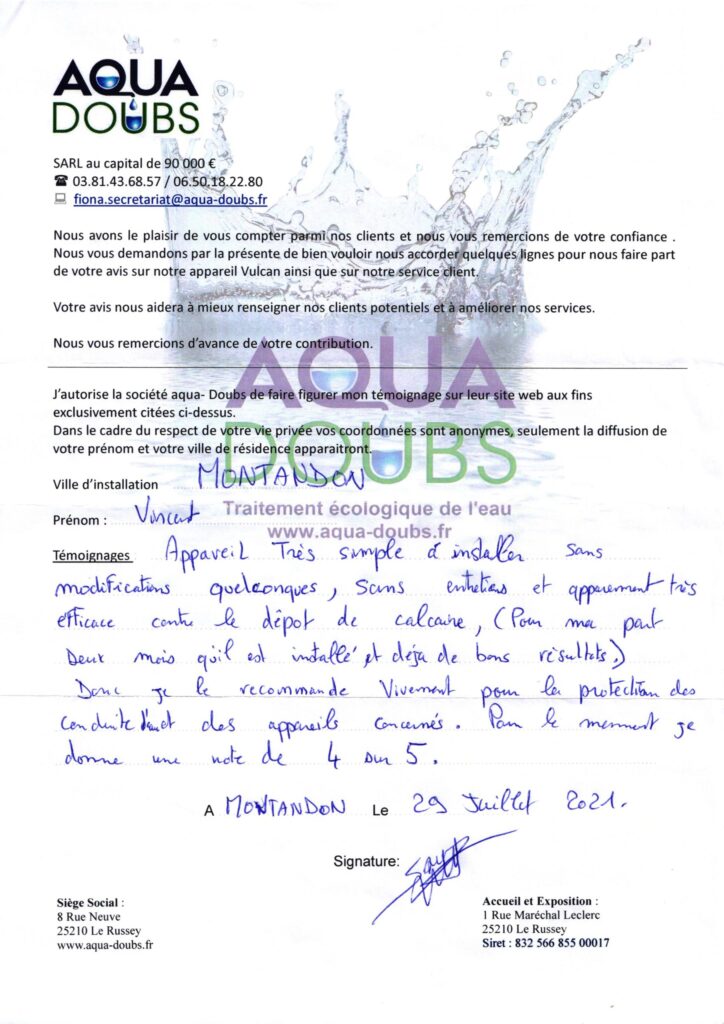 AQUA
DOUBS
SARL au capital de 90 000 €
☎ 03.81.43.68.57 / 06.50.18.22.80
fiona.secretariat@aqua-doubs.fr
Nous avons le plaisir de vous compter parmi nos clients et nous vous remercions de votre confiance .
Nous vous demandons par la présente de bien vouloir nous accorder quelques lignes pour nous faire part
de votre avis sur notre appareil Vulcan ainsi que sur notre service client.
Votre avis nous aidera à mieux renseigner nos clients potentiels et à améliorer nos services.
Nous vous remercions d'avance de votre contribution.
AQUA
DOUBS
J'autorise la société aqua- Doubs de faire figurer mon témoignage sur leur site web aux fins
exclusivement citées ci-dessus.
Dans le cadre du respect de votre vie privée vos coordonnées sont anonymes, seulement la diffusion de
votre prénom et votre ville de résidence apparaitront.
Ville d'installation MONTANDON
Traitement écologique de l'eau
Prénom : Vincent
www.aqua-doubs.fr
Témoignages Appareil Très simple d'installer sans
modifications quelconques, sans entretiens et apparement très
efficace contre le dépot de calcaire, (Pour ma part
Deux mois qu'il est installé et déja de bons résultats.)
Donc je le recommande Vivement pour la protection des
conduite d'eau et des appareils concernés. Pour le momment je
donne une note de 4 sur 5.
A MONTANDON Le 29 Juillet 2021.
Signature:
Siège Social :
8 Rue Neuve
25210 Le Russey
www.aqua-doubs.fr
Accueil et Exposition :
1 Rue Maréchal Leclerc
25210 Le Russey
Siret : 832 566 855 00017